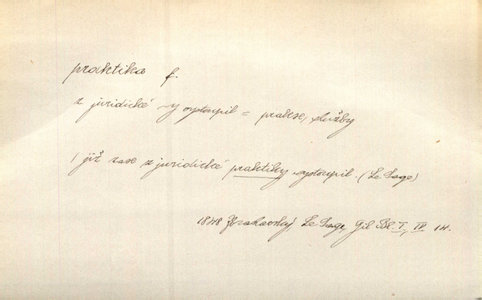 praktika f.
z juridické ~y vystoupil = prakse, služby
již zase z juridické praktiky vystoupil. (Le Sage)
1848 Le Sage, Gil Bl. I, IV 14.